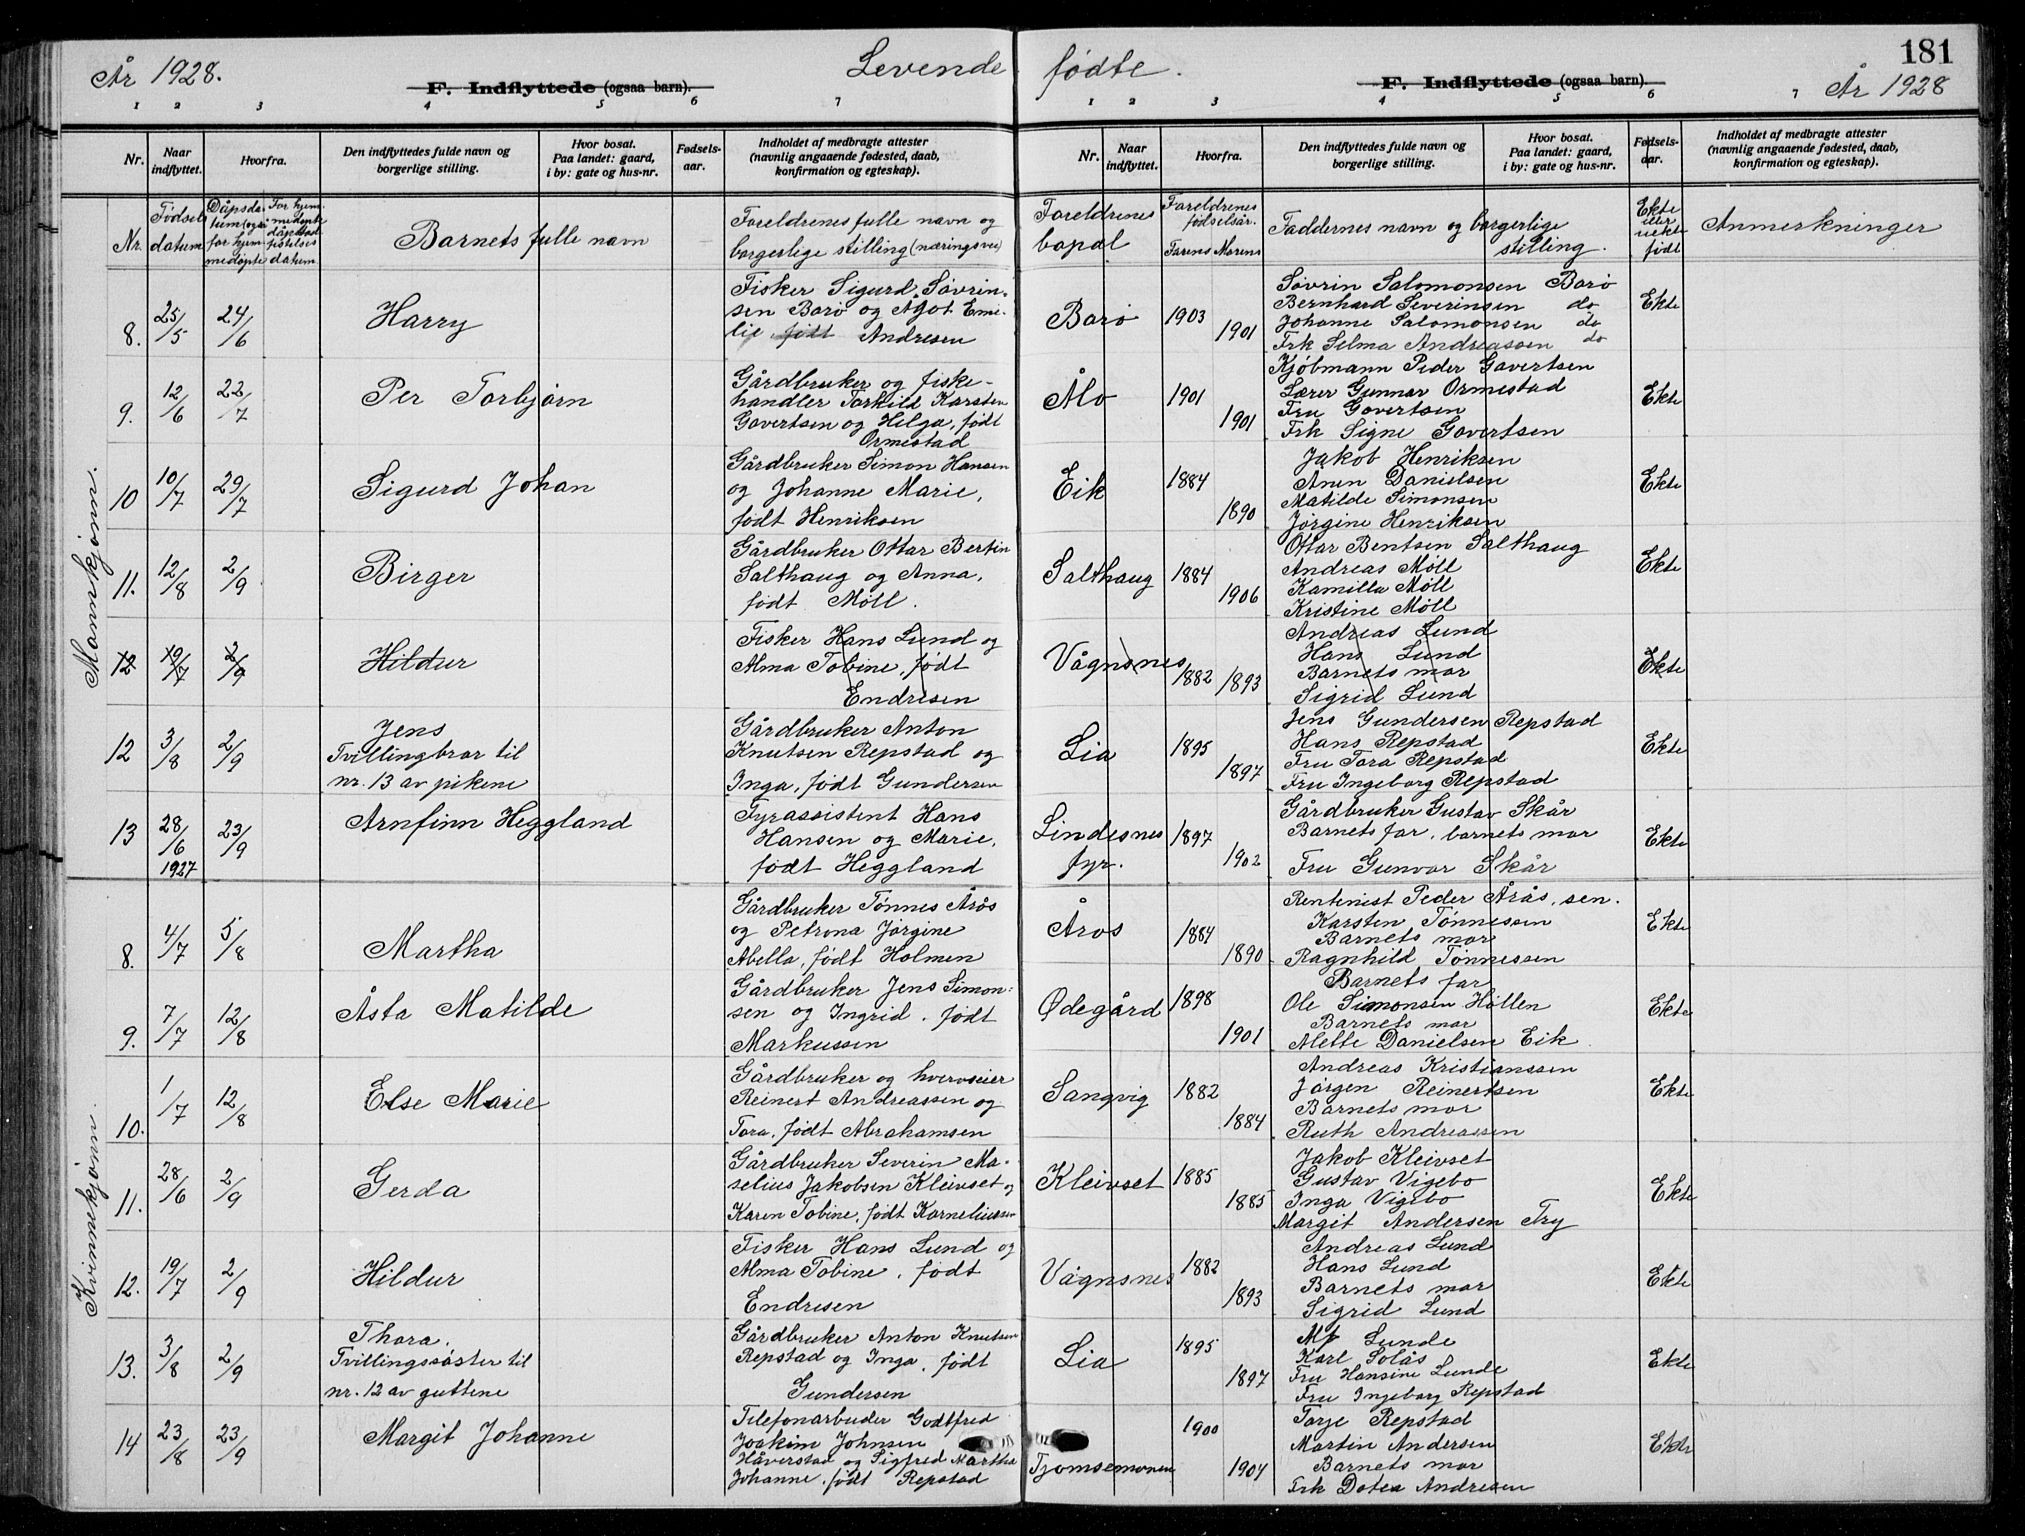 181
År 1928.
Levende fødte.
År 1928
F. Indflyttede (ogsaa barn).
F. Indflyttede (ogsaa barn).
1 2 3 4 5 6 7
1 2 3 4 5 6 7
Nr.
Naar indflyttet.
Hvorfra.
Den indflyttedes fulde navn og borgerlige stilling.
Hvor bosat. Paa landet: gaard, i by: gate og hus-nr.
Fødsels-aar.
Indholdet af medbragte attester (navnlig angaaende fødested, daab, konfirmation og egteskap).
Nr.
Naar indflyttet.
Hvorfra.
Den indflyttedes fulde navn og borgerlige stilling.
Hvor bosat. Paa landet: gaard, i by: gate og hus-nr.
Fødsels-aar.
Indholdet af medbragte attester (navnlig angaaende fødested, daab, konfirmation og egteskap).
Nr.
Fødsels datum
Barnets fulle navn
Foreldrenes fulle navn og
borgerlige stilling (næringsvei)
Foreldrenes bopæl
Foreldrenes fødselsår.
Farens Morens
Faddernes navn og borgerlige
stilling.
Ekte eller uekte født
Anmerkninger
Mannkjønn.
8. 25/5 24/6 Harry
Fisker Sigurd Søvrin-
sen Barø og Agot Emi-
lie født Andresen
Barø 1903 1901
Søvrin Salomonsen Barø
Bernhard Severinsen do
Johanne Salomonsen do
Frk Selma Andreassen do
Ekte
9. 12/6 22/7 Per Torbjørn
Gårdbruker og fiske-
handler Torkild Karsten
Govertsen og Helga, født
Ormestad
Ålo 1901 1901
Kjøbmann Peder Govertsen
Lærer Gunnar Ormestad
Fru Govertsen
Frk Signe Govertsen
Ekte
10 10/7 29/7 Sigurd Johan
Gårdbruker Simon Hansen
og Johanne Marie,
født Henriksen
Eik 1884 1890
Jakob Henriksen
Anen Danielsen
Matilde Simonsen
Jørgine Henriksen
Ekte
11. 12/8 2/9 Birger
Gårdbruker Ottar Bertin
Salthaug og Anna,
født Møll.
Salthaug 1884 1906
Ottar Bentsen Salthaug
Andreas Møll
Kamilla Møll
Kristine Møll
Ekte
12 19/7 2/9 Hildur
Fisker Hans Lund og
Alma Tobine, født
Endresen
Vågnsnes 1882 1893
Andreas Lund
Hans Lund
Barnets mor
Sigrid Lund
Ekte
12 3/8 2/9 Jens
Tvillingbror til
nr. 13 av pikene
Gårdbruker Anton
Knutsen Repstad og
Inga, født Gundersen
Lia 1895 1897
Jens Gundersen Repstad
Hans Repstad
Fru Tora Repstad
Fru Ingeborg Repstad
Ekte
13 28/6 1927 23/9 Arnfinn Heggland
Fyrassistent Hans
Hansen og Marie,
født Heggland
Lindesnes fyr. 1897 1902
Gårdbruker Gustav Skår
Barnets far, barnets mor
Fru Gunvor Skår
Ekte
Kvinnekjønn.
8. 4/7 5/8 Martha
Gårdbruker Tønnes Årås
og Petrona Jørgine
Abella, født Holmen
Åros 1884 1890
Rentenist Peder Årås, sen.
Karsten Tønnessen
Barnets mor
Ragnhild Tønnessen
Ekte
9. 7/7 12/8 Åsta Matilde
Gårdbruker Jens Simon-
sen og Ingrid, født
Markussen
Ødegård 1898 1901
Barnets far
Ole Simonsen Høllen
Barnets mor
Alette Danielsen Eik
Ekte
10. 1/7 12/8 Else Marie
Gårdbruker og hvervseier
Reinert Andreassen og
Tora, født Abrahamsen
Sangvig 1882 1884
Andreas Kristianssen
Jørgen Reinertsen
Barnets mor
Ruth Andreassen
Ekte
11. 28/6 2/9 Gerda
Gårdbruker Severin Ma-
selius Jakobsen Kleivset og
Karen Tobine, født Korneliussen
Kleivset 1885 1885
Jakob Kleivset
Gustav Vigebo
Inga Vigebo
Margit Andersen Try
Ekte
12. 19/7 2/9 Hildur
Fisker Hans Lund og
Alma Tobine, født
Endresen
Vågnsnes 1882 1893
Andreas Lund
Hans Lund
Barnets mor
Sigrid Lund
Ekte
13. 3/8 2/9 Thora.
Tvillingssøster til
nr. 12 av guttene
Gårdbruker Anton Knutsen
Repstad og Inga, født
Gundersen
Lia 1895 1897
Lunde
Karl Solås
Fru Hansine Lunde
Fru Ingeborg Repstad
Ekte
14 23/8 23/9 Margit Johanne
Telefonarbeider Godtfred
Joakim Johnsen
Håverstad og Sigfred Martha
Johanne, født Repstad
Tjomsemonen 1900 1904
Torje Repstad
Martin Andersen
Barnets mor
Frk Dotea Andresen
Ekte